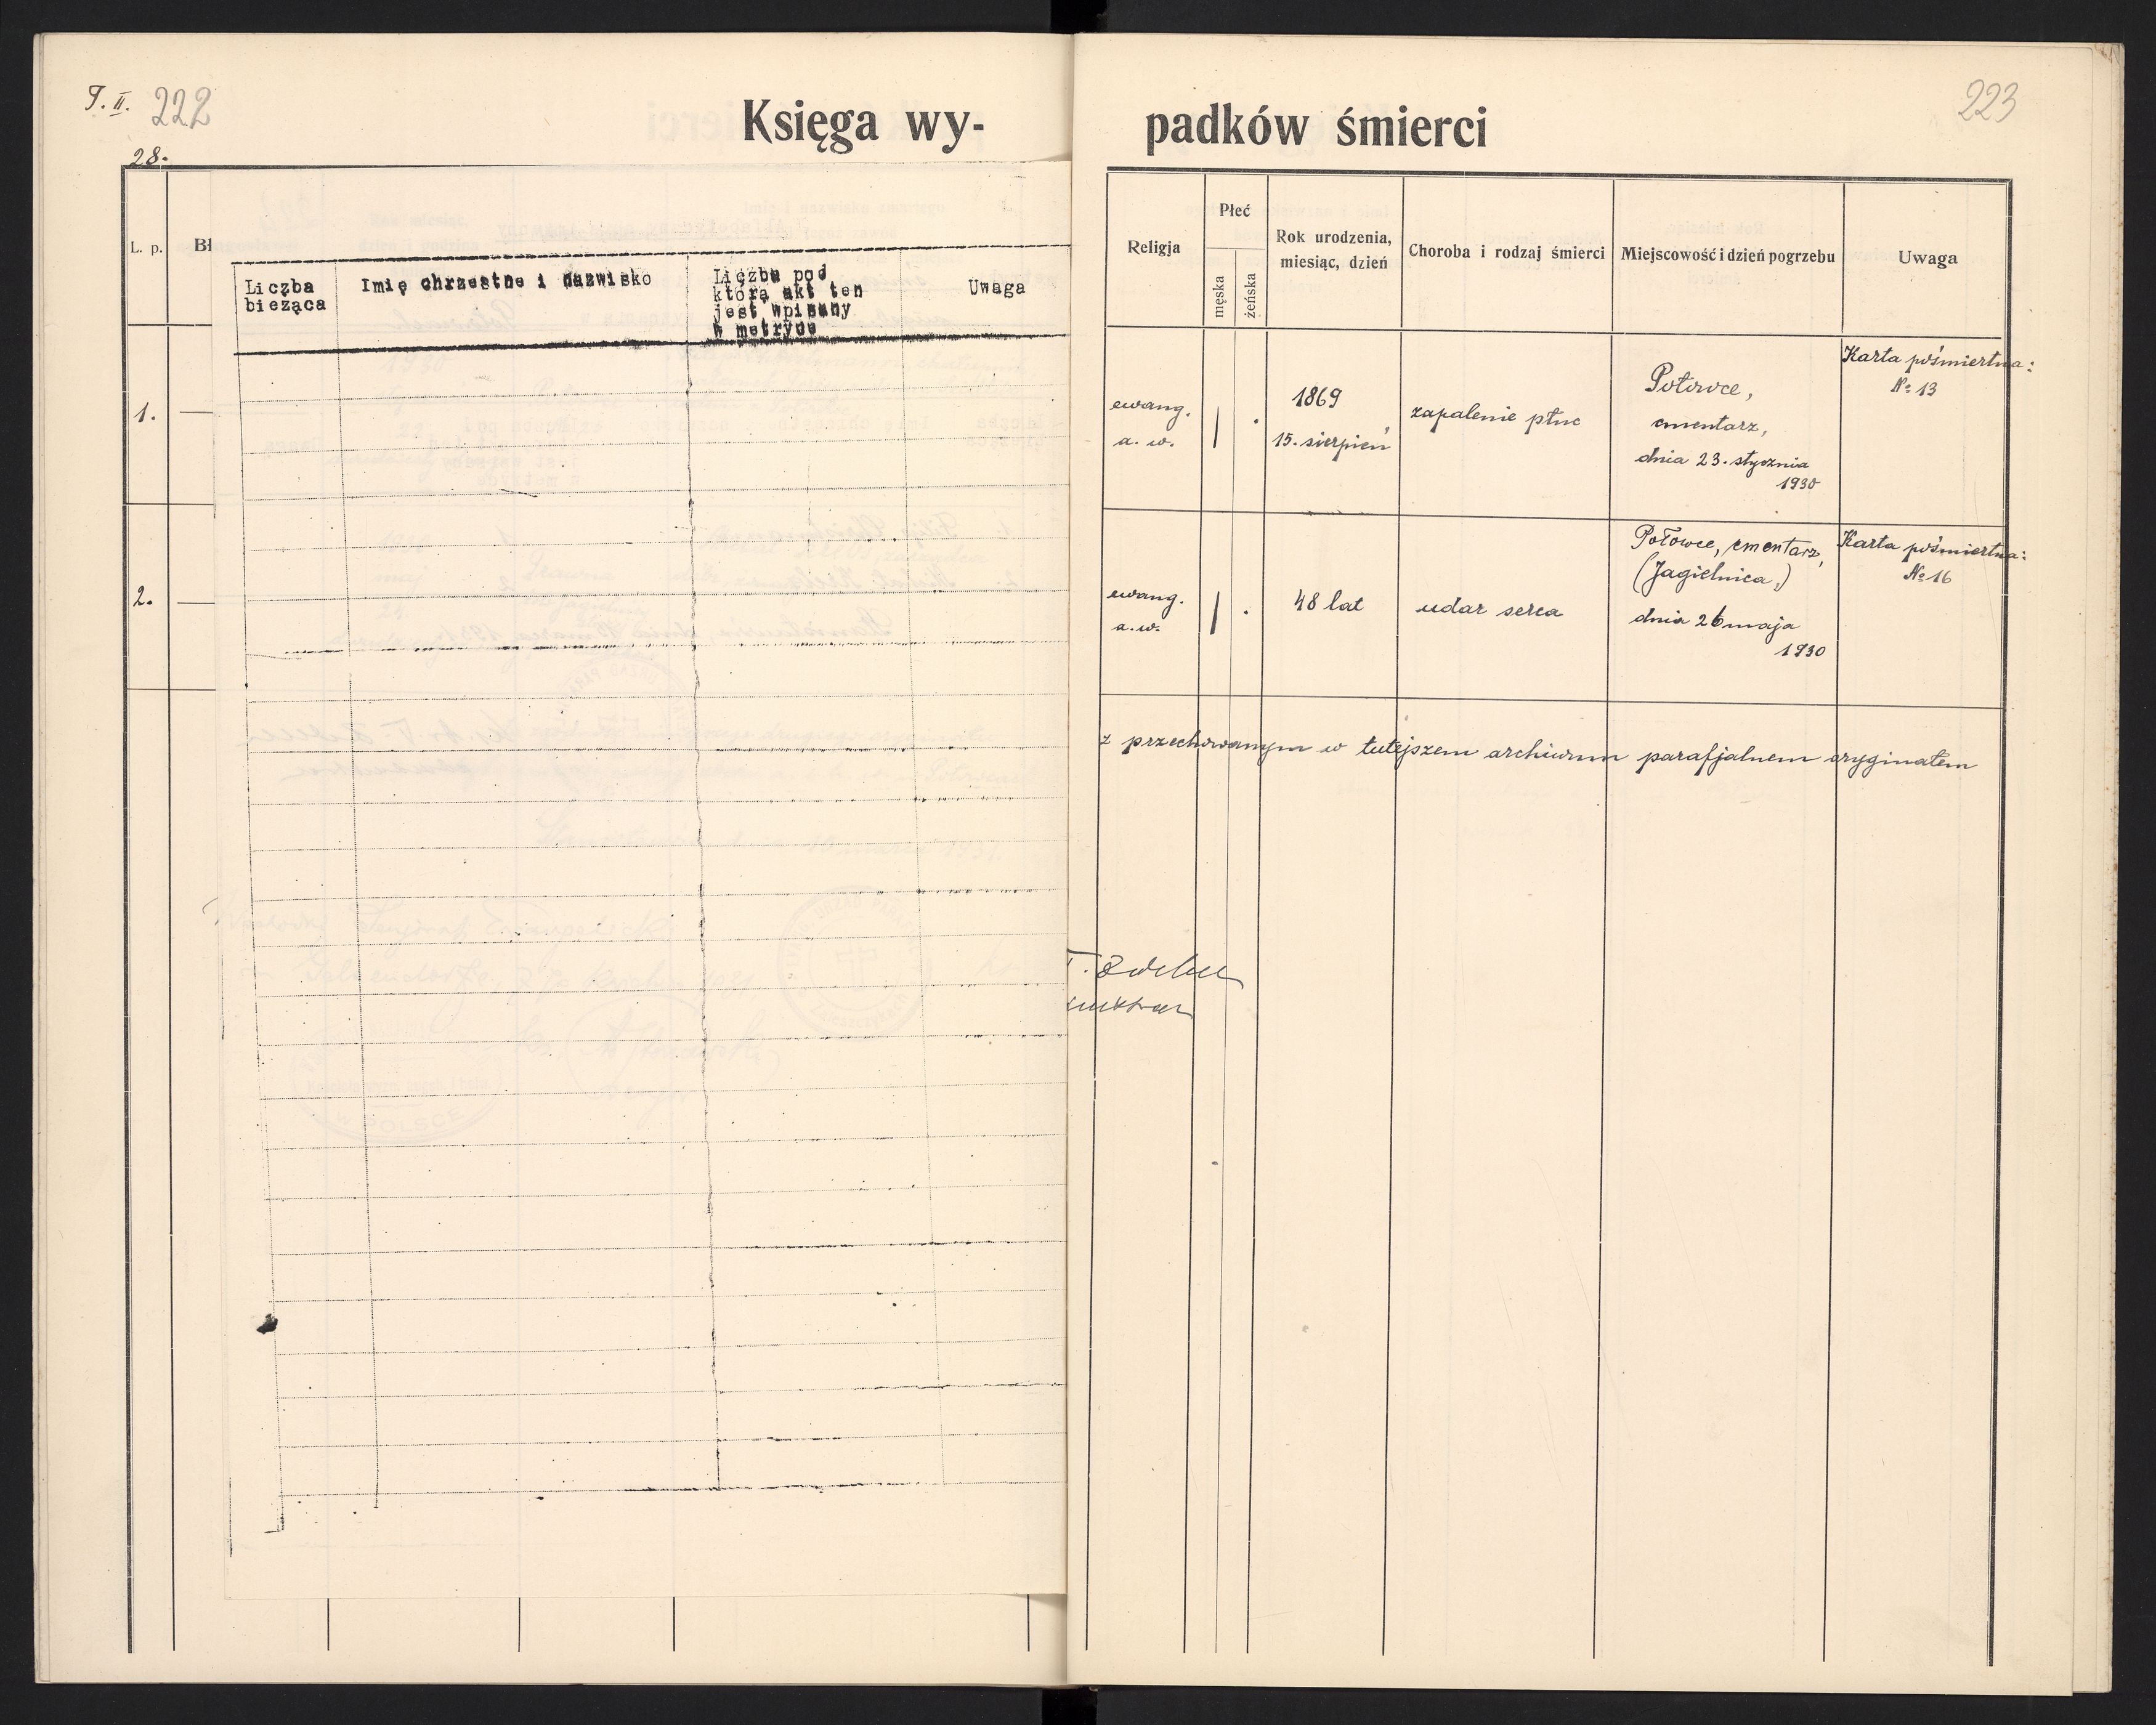 T. II. 222
28.
Księga wy-
L. p.
Bł
Liczba
bieżąca
Imię chrzestne i nazwisko
Liczba pod
którą akt ten
jest wpisany
w metryce
Uwaga
1.
2.
223
padków śmierci
Religja
Płeć
męska
żeńska
Rok urodzenia,
miesiąc, dzień
Choroba i rodzaj śmierci
Miejscowość i dzień pogrzebu
Uwaga
ewang.
a. w.
1869
15. sierpień
zapalenie płuc
Połowce,
cmentarz,
dnia 23. stycznia
1930
Karta pośmiertna:
№ 13
ewang.
a. w.
48 lat
udar serca
Połowce, cmentarz,
(Jagielnica,)
dnia 26 maja
1930
Karta pośmiertna:
№ 16
z przechowanym w tutejszem archiwum parafjalnem oryginałem